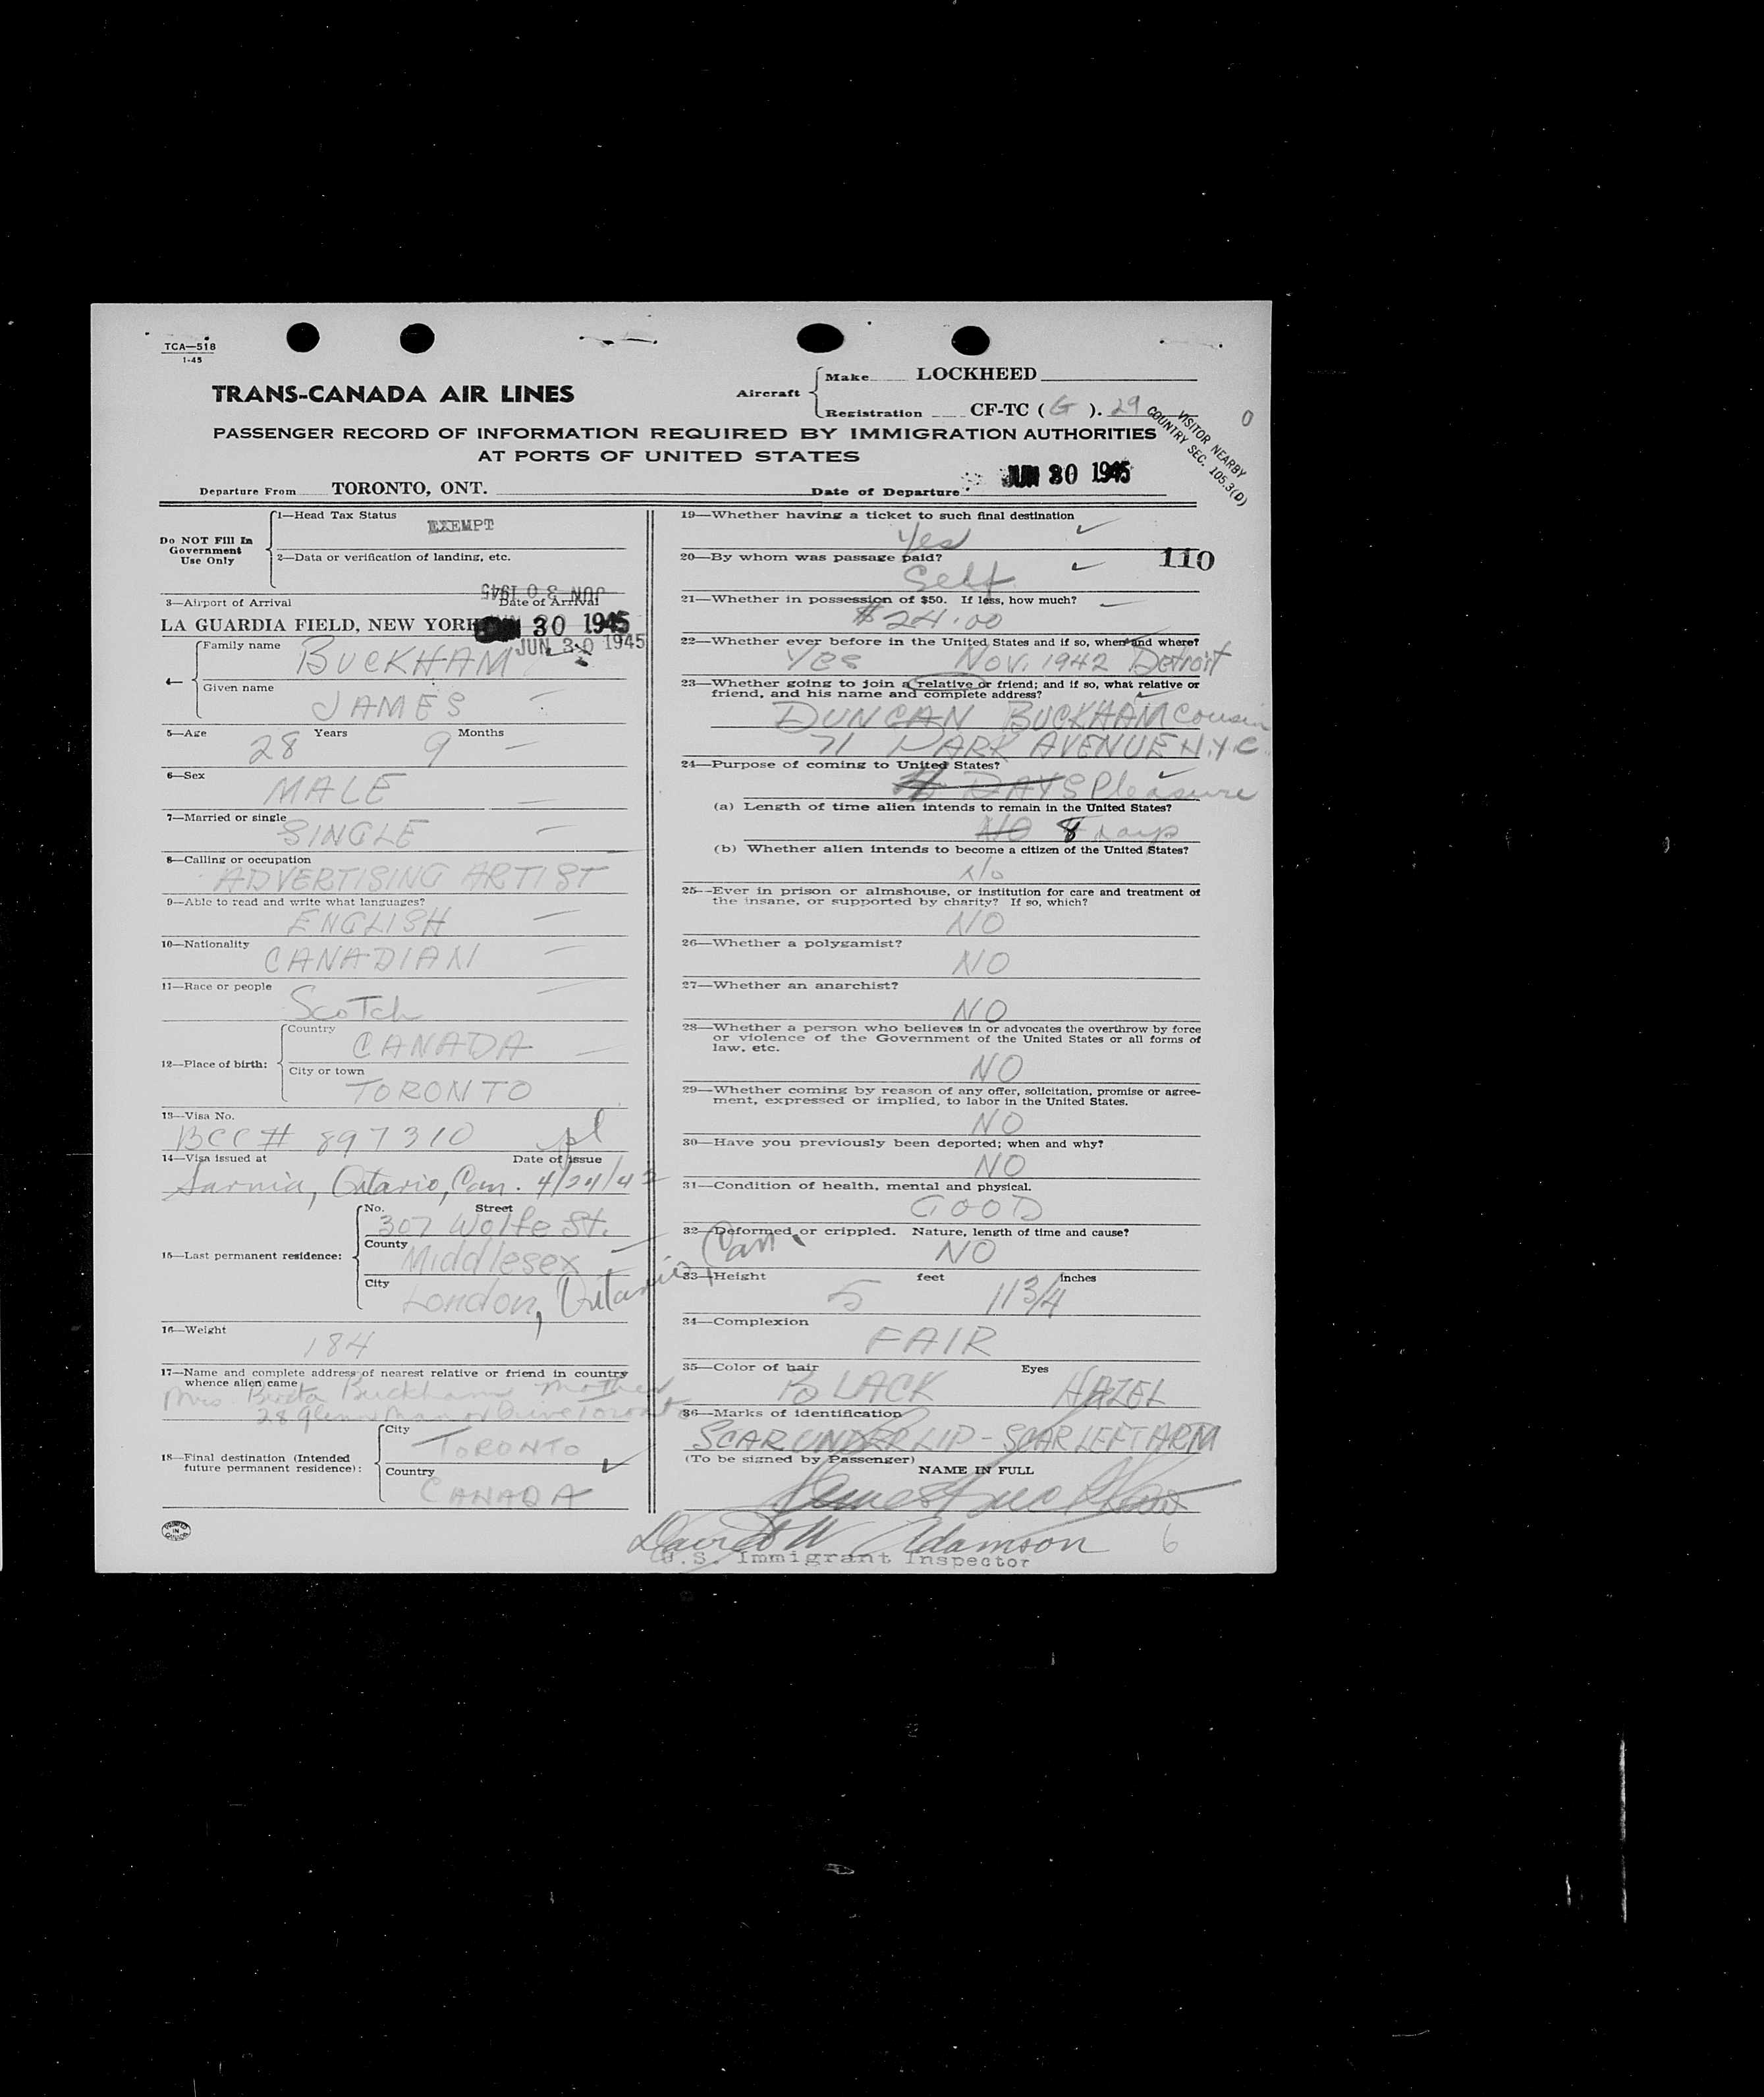 TCA—518
1-45
TRANS-CANADA AIR LINES
Aircraft
Make LOCKHEED
Registration CF-TC ( G ). 29
0
VISITOR NEARBY
COUNTRY SEC. 105.3(D)
PASSENGER RECORD OF INFORMATION REQUIRED BY IMMIGRATION AUTHORITIES
AT PORTS OF UNITED STATES
Departure From TORONTO, ONT.
Date of Departure JUN 30 1945
Do NOT Fill In
Government
Use Only
1—Head Tax Status
EXEMPT
2—Data or verification of landing, etc.
JUN 30 1945
3—Airport of Arrival Date of Arrival
LA GUARDIA FIELD, NEW YORK JUN 30 1945
JUN 30 1945
4—
Family name
BUCKHAM
Given name
JAMES
5—Age 28 Years 9 Months
6—Sex
MALE
7—Married or single
SINGLE
8—Calling or occupation
ADVERTISING ARTIST
9—Able to read and write what languages?
ENGLISH
10—Nationality
CANADIAN
11—Race or people
Scotch
12—Place of birth:
Country
CANADA
City or town
TORONTO
13—Visa No.
BCC # 897310 pl
14—Visa issued at Date of issue
Sarnia, Ontario, Can. 4/24/43
15—Last permanent residence:
No. Street
307 Wolfe St.
County
Middlesex
City
London, Ontario, Can
16—Weight
184
17—Name and complete address of nearest relative or friend in country
whence alien came
Mrs. Buckham mother
28 Glenn Manor Drive Toronto
18—Final destination (Intended
future permanent residence):
City
TORONTO
Country
CANADA
PRINTED
IN
CANADA
19—Whether having a ticket to such final destination
Yes
20—By whom was passage paid?
110
Self
21—Whether in possession of $50. If less, how much?
$24.00
22—Whether ever before in the United States and if so, when and where?
YES Nov. 1942 Detroit
23—Whether going to join a relative or friend; and if so, what relative or
friend, and his name and complete address?
DUNCAN BUCKHAM cousin
71 PARK AVENUE N.Y.C.
24—Purpose of coming to United States?
DAYS Pleasure
(a) Length of time alien intends to remain in the United States?
NO 8 days
(b) Whether alien intends to become a citizen of the United States?
No
25—Ever in prison or almshouse, or institution for care and treatment of
the insane, or supported by charity? If so, which?
NO
26—Whether a polygamist?
NO
27—Whether an anarchist?
NO
28—Whether a person who believes in or advocates the overthrow by force
or violence of the Government of the United States or all forms of
law, etc.
NO
29—Whether coming by reason of any offer, solicitation, promise or agree-
ment, expressed or implied, to labor in the United States.
NO
30—Have you previously been deported; when and why?
NO
31—Condition of health, mental and physical.
GOOD
32—Deformed or crippled. Nature, length of time and cause?
NO
33—Height feet inches
5 11 3/4
34—Complexion
FAIR
35—Color of hair Eyes
BLACK HAZEL
36—Marks of identification
SCAR UNDER LIP - SCAR LEFT ARM
(To be signed by Passenger)
NAME IN FULL
James Buckham
David W Adamson 6
U.S. Immigrant Inspector